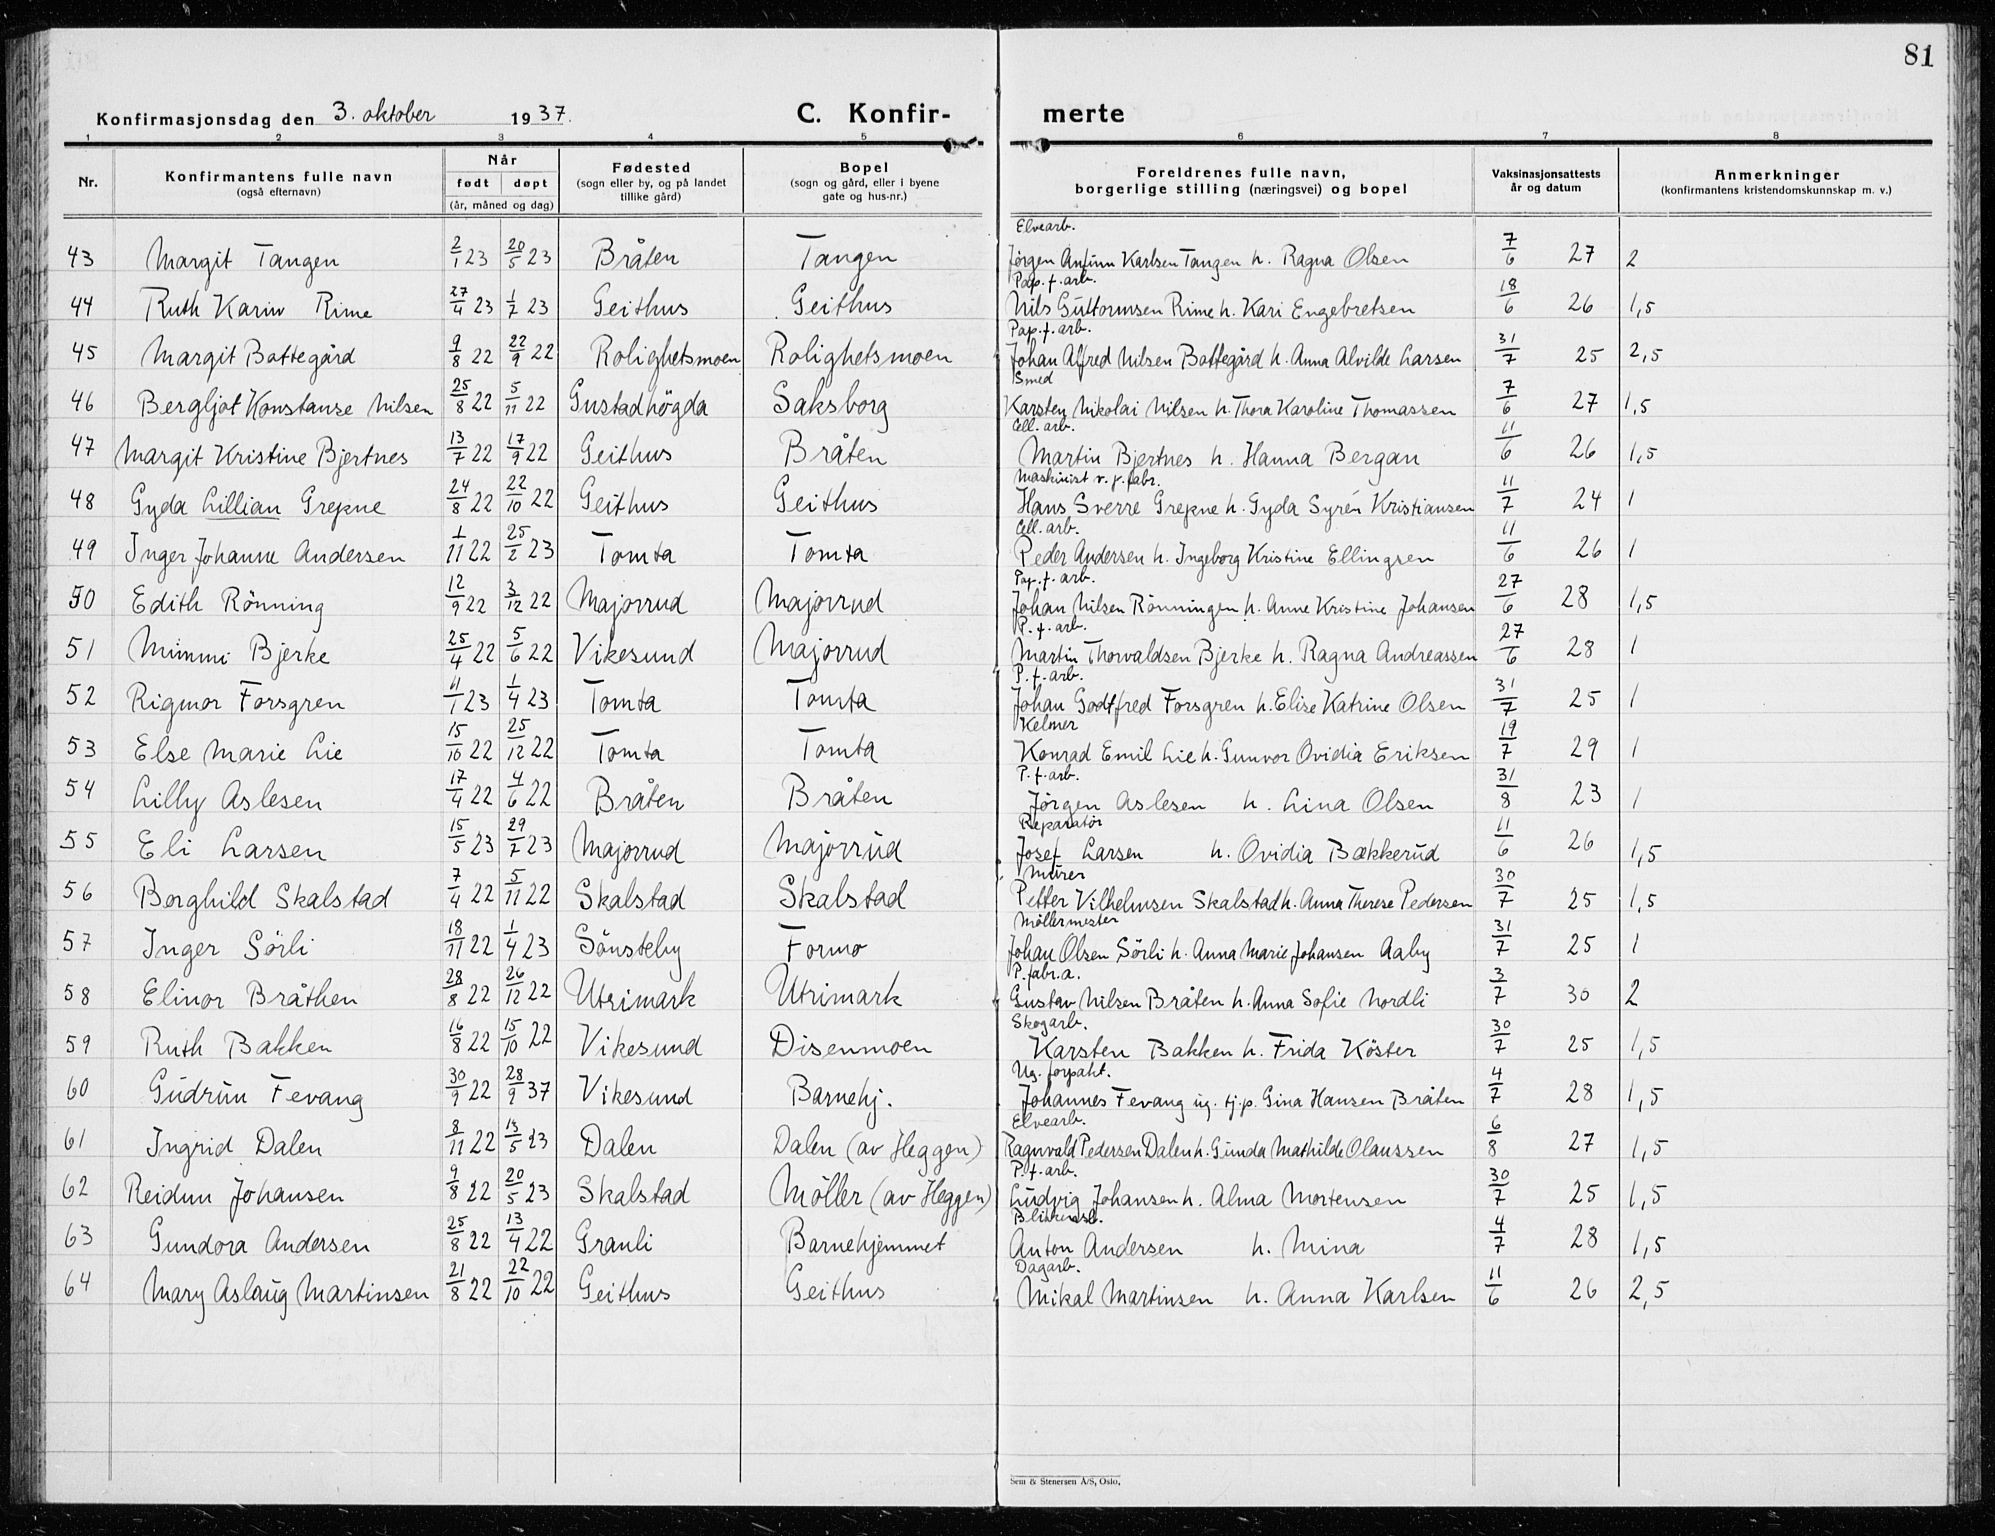 81
Konfirmasjonsdag den 3. oktober 1937. C. Konfir- merte
1 2 3 4 5 6 7 8
Nr. Konfirmantens fulle navn (også efternavn) Når født døpt (år, måned og dag) Fødested (sogn eller by, og på landet tillike gård) Bopel (sogn og gård, eller i byene gate og hus-nr.) Foreldrenes fulle navn, borgerlige stilling (næringsvei) og bopel Vaksinasjonsattests år og datum Anmerkninger (konfirmantens kristendomskunnskap m. v.)
Elvearb.
43 Margit Tangen 2/1 23 20/5 23 Bråten Tangen Jørgen Karlsen Tangen h. Ragna Olsen 7/6 27 2
Pap. f. arb.
44 Ruth Karin Rime 27/4 23 1/7 23 Geithus Geithus Nils Guttormsen Rime h. Kari Engebretsen 18/6 26 1,5
Pap. f. arb.
45 Margit Bottegård 9/8 22 22/9 22 Rolighetsmoen Rolighetsmoen Johan Alfred Nilsen Bottegård h. Anna Alvilde Larsen 31/7 25 2,5
Smed
46 Bergljot Konstanse Nilsen 25/8 22 5/11 22 Gustadhögda Saksborg Karsten Nikolai Nilsen h. Thora Karoline Thomassen 7/6 27 1,5
Cell. arb.
47 Margit Kristine Bjertnes 13/7 22 17/9 22 Geithus Bråten Martin Bjertnes h. Hanna Bergan 11/6 26 1,5
Maskinist v. p. fabr.
48 Gyda Lillian Grepne 24/8 22 22/10 22 Geithus Geithus Hans Sverre Grepne h. Gyda Syrén Kristiansen 11/7 24 1
Cell. arb.
49 Inger Johanne Andersen 1/11 22 25/2 23 Tomta Tomta Peder Andersen h. Ingeborg Kristine Ellingsen 11/6 26 1
Pap. f. arb.
50 Edith Rönning 12/9 22 3/12 22 Majorrud Majorrud Johan Nilsen Rönningen h. Anne Kristine Johansen 27/6 28 1,5
P. f. arb.
51 Mimmi Bjerke 25/4 22 5/6 22 Vikesund Majorrud Martin Thorvaldsen Bjerke h. Ragna Andreassen 27/6 28 1
P. f. arb.
52 Rigmor Forsgren 11/1 23 1/4 23 Tomta Tomta Johan Godtfred Forsgren h. Elise Katrine Olsen 31/7 25 1
Kelner
53 Else Marie Lie 15/10 22 25/12 22 Tomta Tomta Konrad Emil Lie h. Gunvor Ovidia Eriksen 19/7 29 1
P. f. arb.
54 Lilly Aslesen 17/4 22 4/6 22 Bråten Bråten Jørgen Aslesen h. Lina Olsen 31/8 23 1
Reparatør
55 Eli Larsen 15/5 23 29/7 23 Majorrud Majorrud Josef Larsen h. Ovidia Bækkerud 11/6 26 1,5
Murer
56 Borghild Skalstad 7/4 22 5/11 22 Skalstad Skalstad Petter Vilhelmsen Skalstad h. Anna Therese Pedersen 30/7 25 1,5
Møllermester
57 Inger Sörli 18/11 22 1/4 23 Sönsteby Formo Johan Olsen Sörli h. Anna Marie Johansen Aaby 31/7 25 1
P. fabr. a.
58 Elinor Bråthen 28/8 22 26/12 22 Utrimark Utrimark Gustav Nilsen Bråten h. Anna Sofie Nordli 3/7 30 2
Skogarb.
59 Ruth Bakken 16/8 22 15/10 22 Vikesund Disenmoen Karsten Bakken h. Frida Köster 30/7 25 1,5
Ug. forpakt.
60 Gudrun Fevang 30/9 22 28/9 37 Vikesund Barnehj. Johannes Fevang ug. tj.p. Gina Hansen Bråten 4/7 28 1,5
Elvearb.
61 Ingrid Dalen 8/11 22 13/5 23 Dalen Dalen (av Heggen) Ragnvald Pedersen Dalen h. Gunda Mathilde Olaussen 6/8 27 1,5
P. f. arb.
62 Reidun Johansen 9/8 22 20/5 23 Skalstad Møller (av Heggen) Ludvig Johansen h. Alma Mortensen 30/7 25 1,5
63 Gundora Andersen 25/8 22 13/4 22 Granli Barnehjemmet Anton Andersen h. Mina 4/7 28 1,5
Dagarb.
64 Mary Aslaug Martinsen 21/8 22 22/10 22 Geithus Geithus Mikal Martinsen h. Anna Karlsen 11/6 26 2,5
Sem & Stenersen A/S, Oslo.